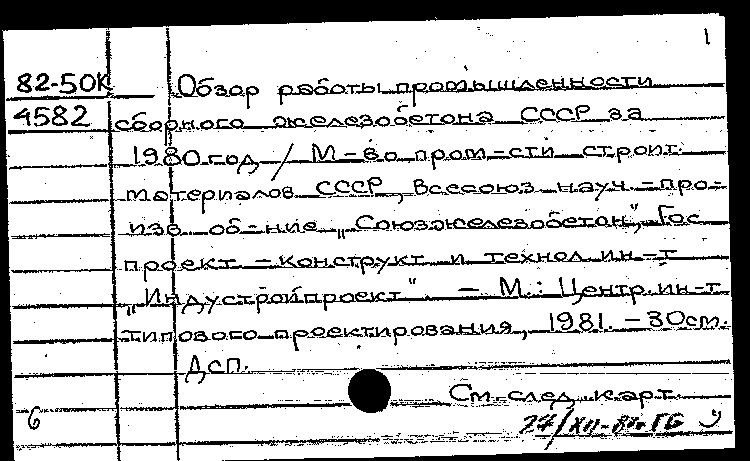 1
82-50К Обзор работы промышленности
4582 сборного железобетона СССР за
1980 год / М-во пром-сти строит.
материалов СССР, Всесоюз. науч.-про-
изв. об-ние „Союзжелезобетон", Гос.
проект.-конструкт. и технол. ин-т
„Индустройпроект". - М.: Центр. ин-т
типового проектирования, 1981. - 30см.
ДСП.
См. след. карт.
6 27/XII- ГБ